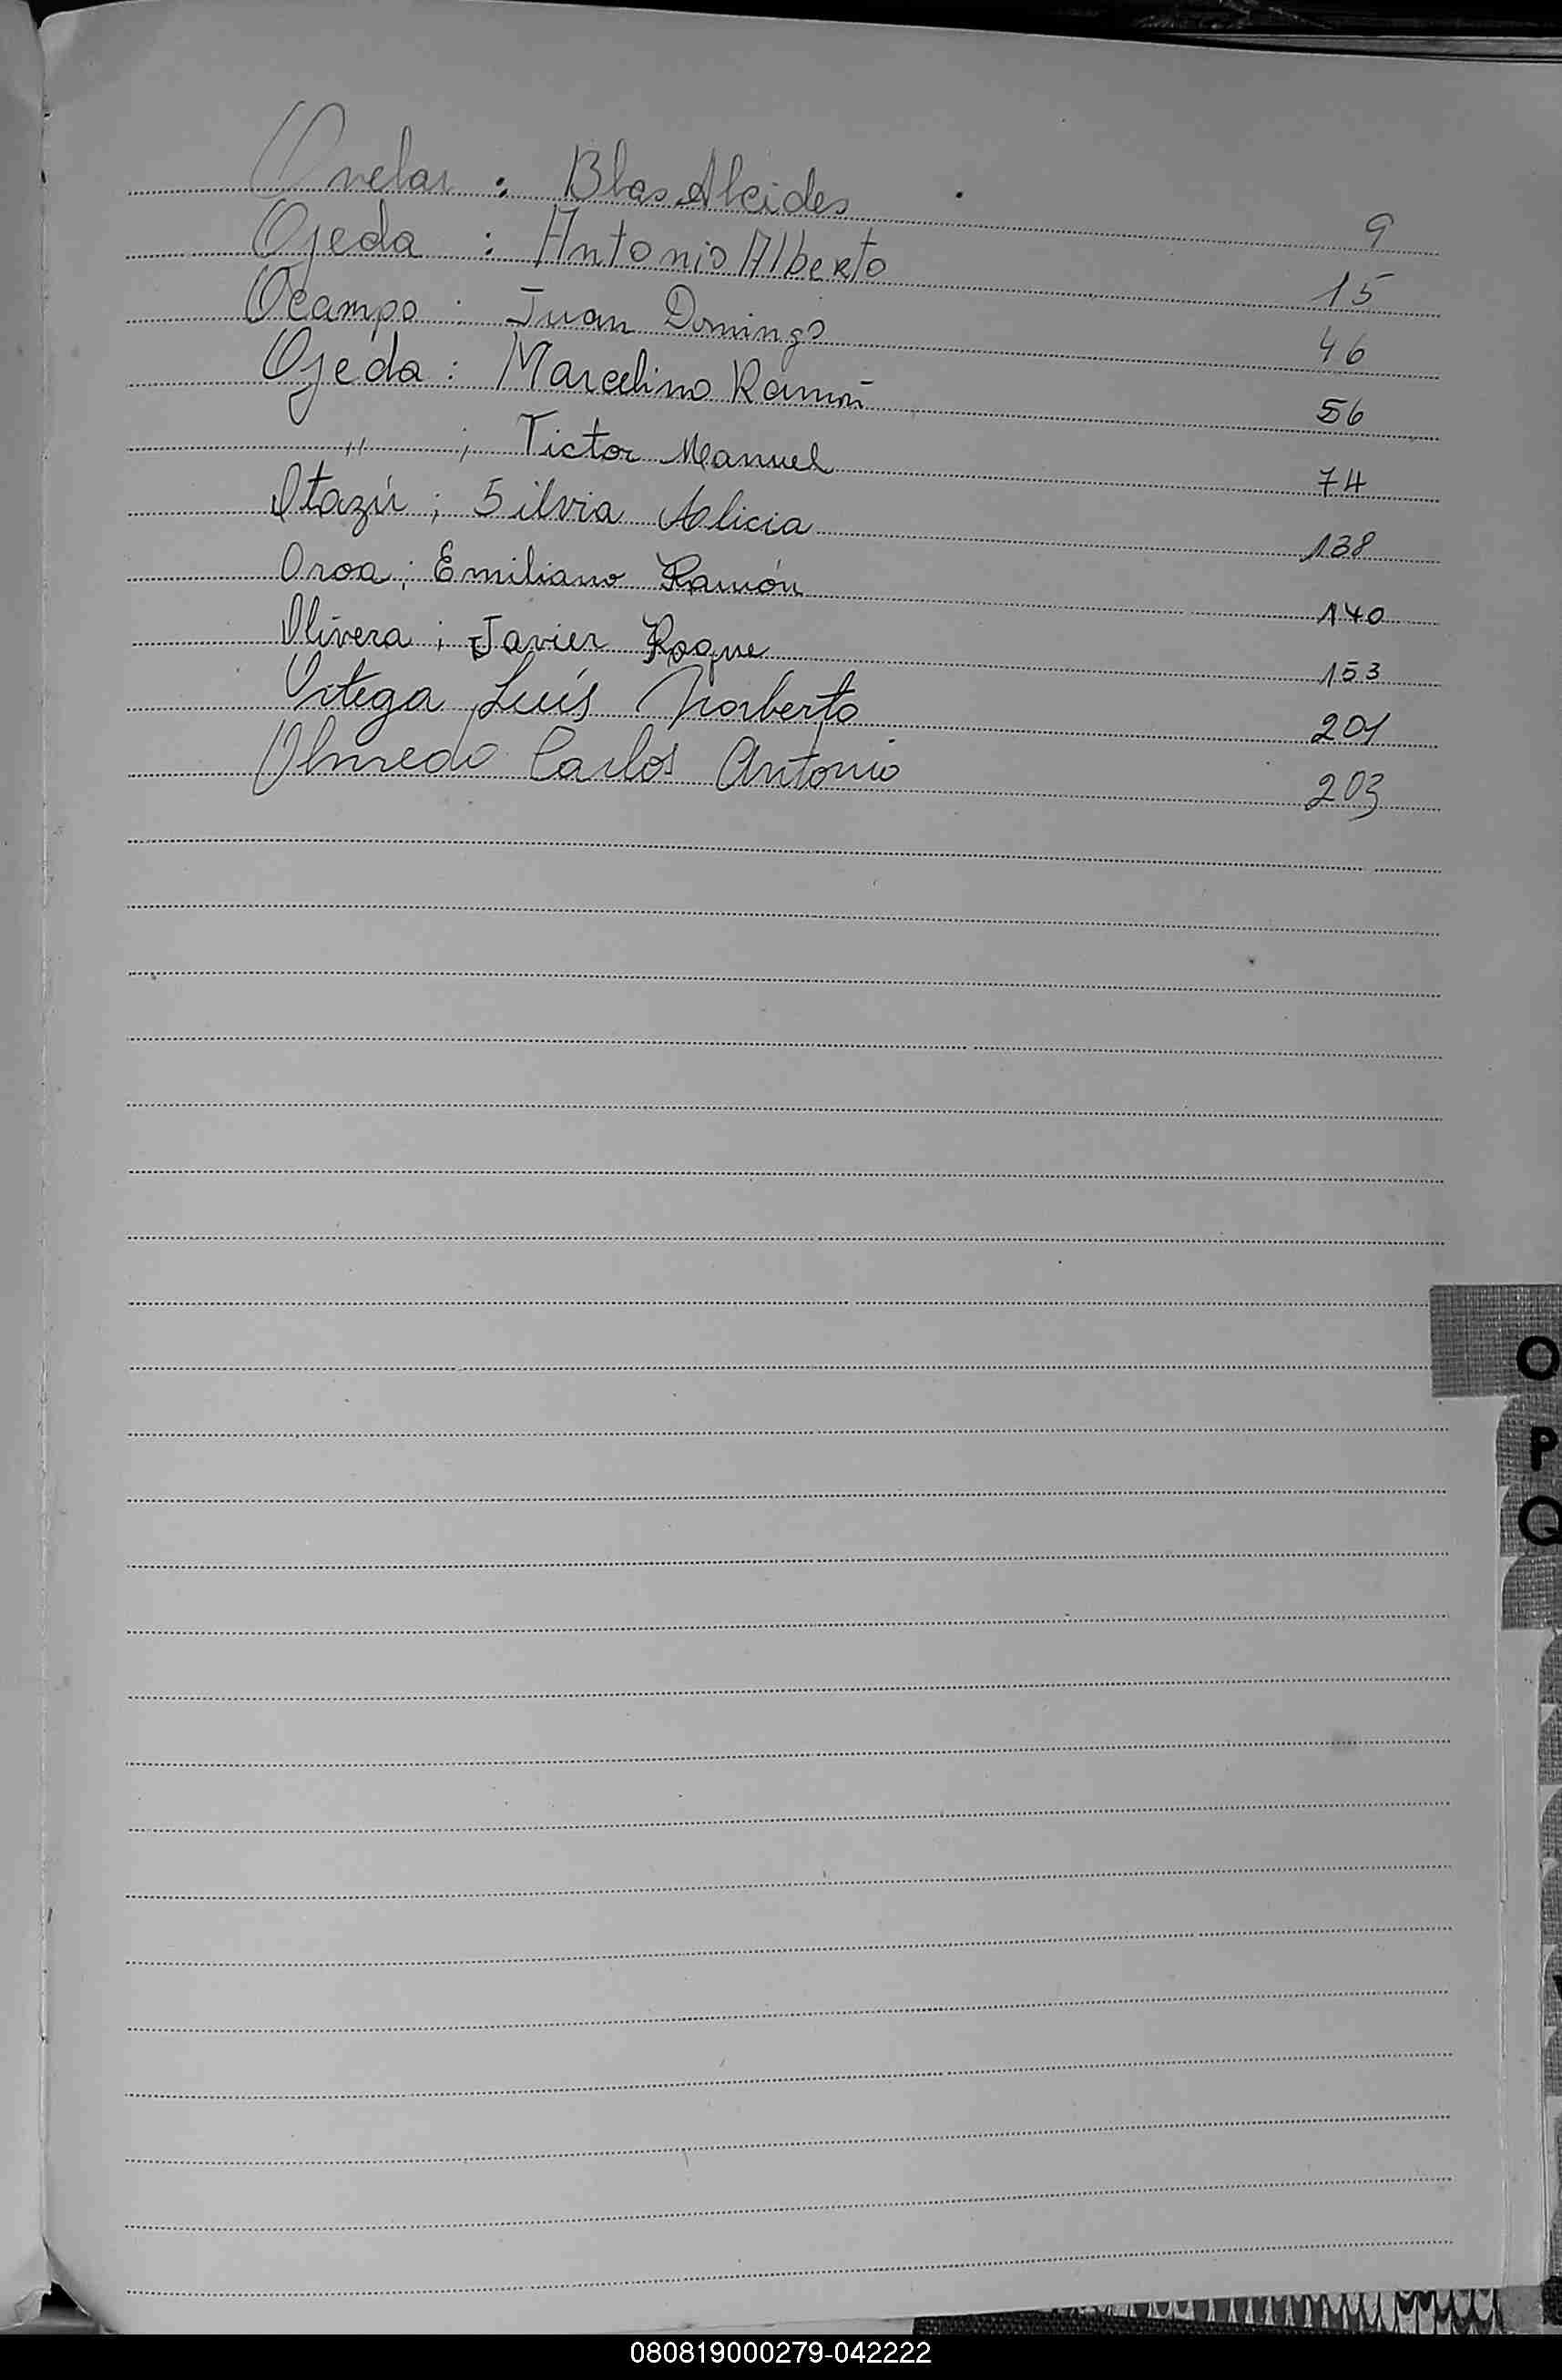 Ovelar : Blas Alcides 9
Ojeda : Antonio Alberto 15
Ocampo : Juan Domingo 46
Ojeda : Marcelino Ramón 56
" ; Victor Manuel 74
Otazú ; Silvia Alicia 138
Oroa ; Emiliano Ramón 140
Olivera ; Javier Roque 153
Ortega, Luís Norberto 201
Olmedo Carlos Antonio 203
O
P
Q
080819000279-042222